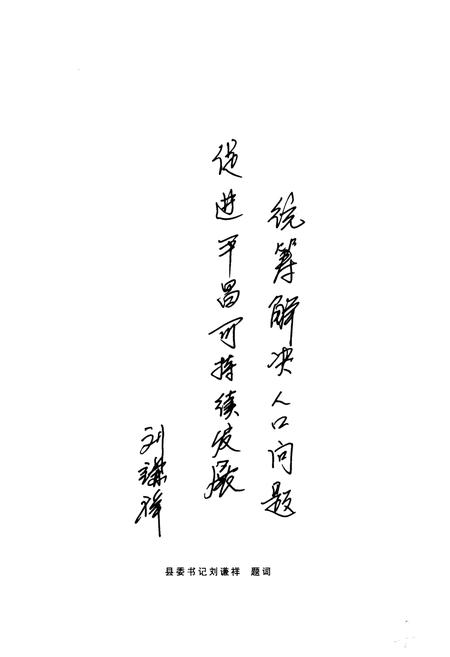 统筹解决人口问题
促进平昌可持续发展
刘谦祥
县委书记刘谦祥 题词